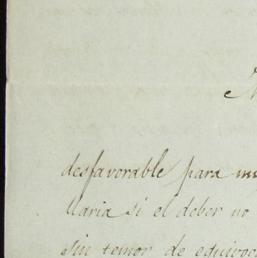 desfavorable para
Maria si el deber no
sin temor de